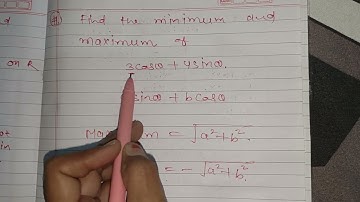 Find the minimum and
maximum of
on R
3cosθ + 4sinθ.
sinθ + b cosθ
Ma m = √a²+b².
= - √a²+b².